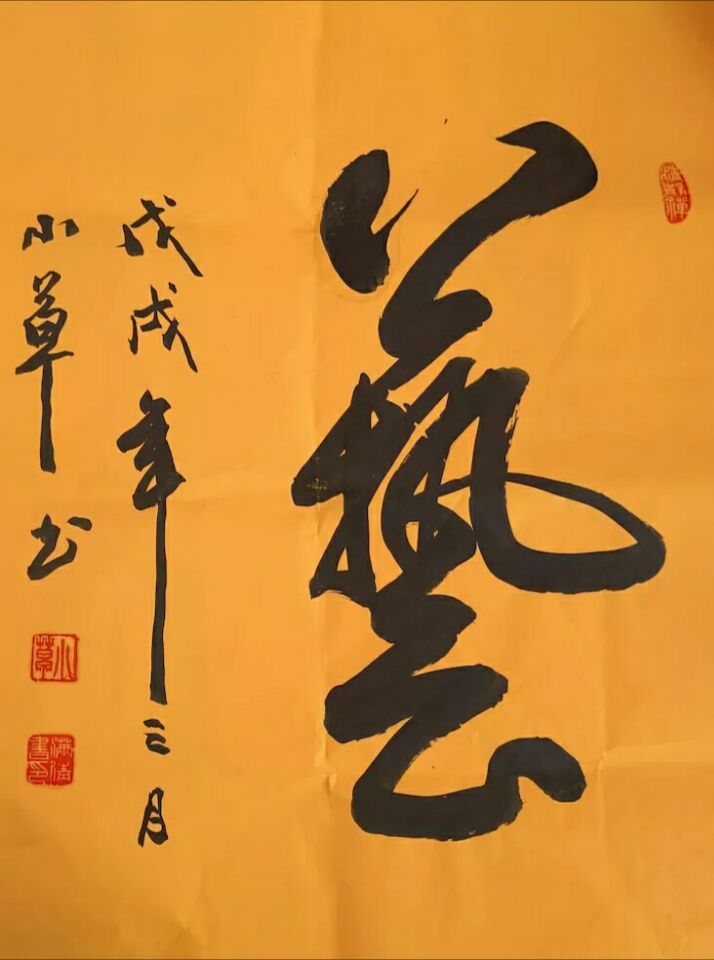 藝
戊戌年三月
小草书
小草